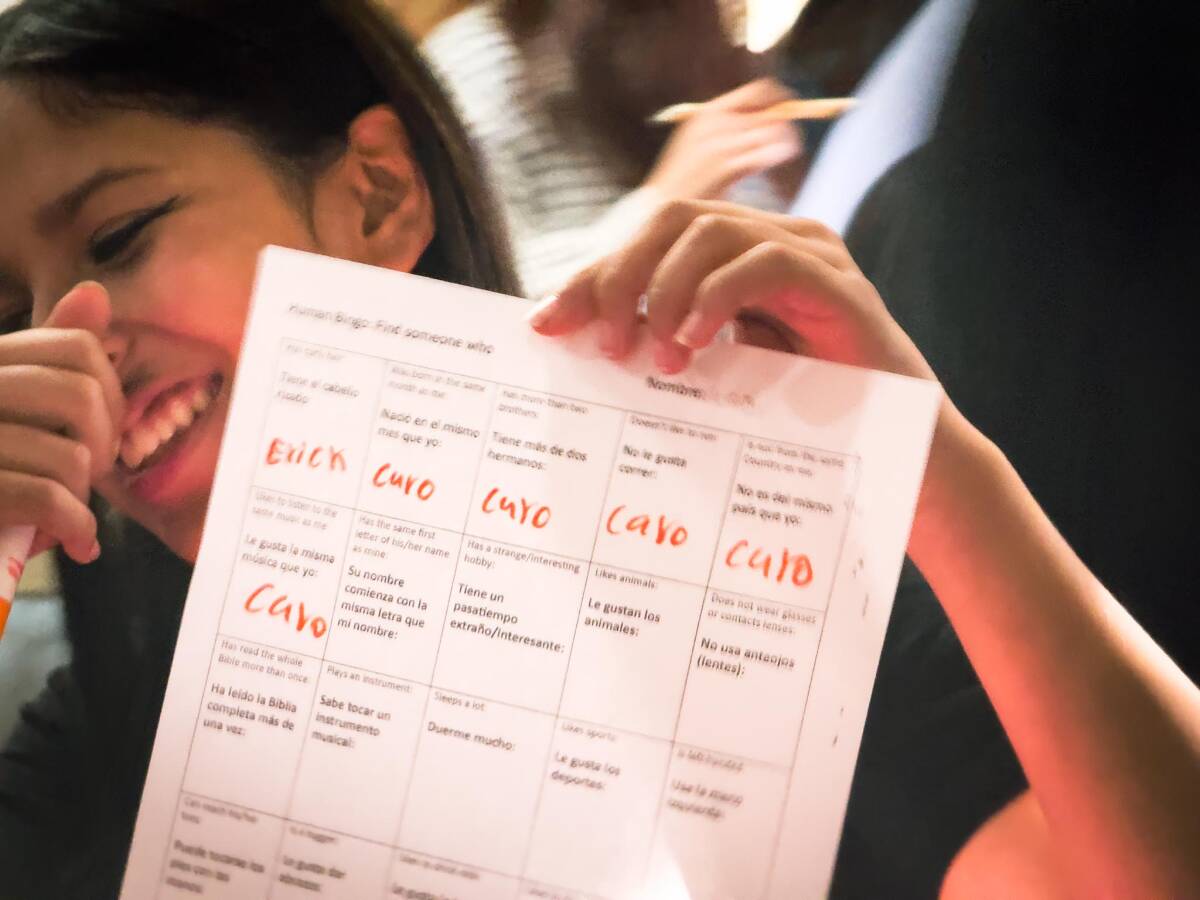 Human Bingo: Find someone who
Nombre:
Has curly hair:
Tiene el cabello
rizado
Erick
Was born in the same
month as me:
Nació en el mismo
mes que yo:
Caro
Has more than two
brothers:
Tiene más de dos
hermanos:
Caro
Doesn't like to run:
No le gusta
correr:
Caro
Is not from the same
Country as me:
No es del mismo
país que yo:
Caro
Likes to listen to the
same music as me
Le gusta la misma
música que yo:
Caro
Has the same first
letter of his/her name
as mine:
Su nombre
comienza con la
misma letra que
mi nombre:
Has a strange/interesting
hobby:
Tiene un
pasatiempo
extraño/interesante:
Likes animals:
Le gustan los
animales:
Does not wear glasses
or contacts lenses:
No usa anteojos
(lentes):
Has read the whole
Bible more than once:
Ha leído la Biblia
completa más de
una vez:
Plays an instrument:
Sabe tocar un
instrumento
musical:
Sleeps a lot:
Duerme mucho:
Likes sports:
Le gusta los
deportes:
Is left handed
Usa la mano
izquierda:
Can reach his/her
toes:
Puede tocarse los
pies con las
manos:
Is a hugger:
Le gusta dar
abrazos: